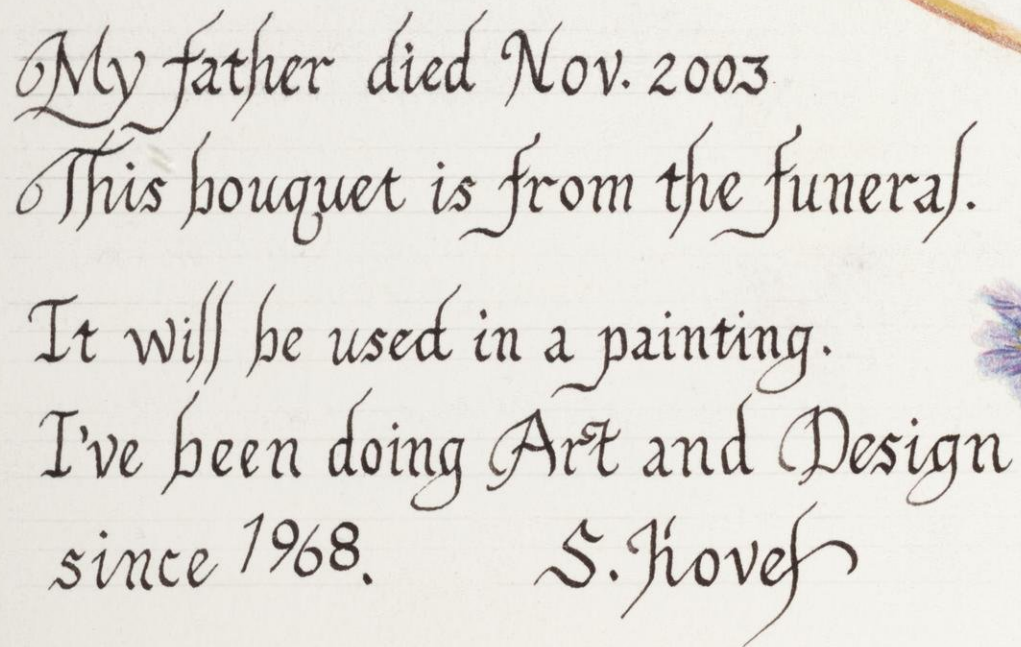 My father died Nov. 2003
This bouquet is from the funeral.
It will be used in a painting.
I've been doing Art and Design
since 1968. S.